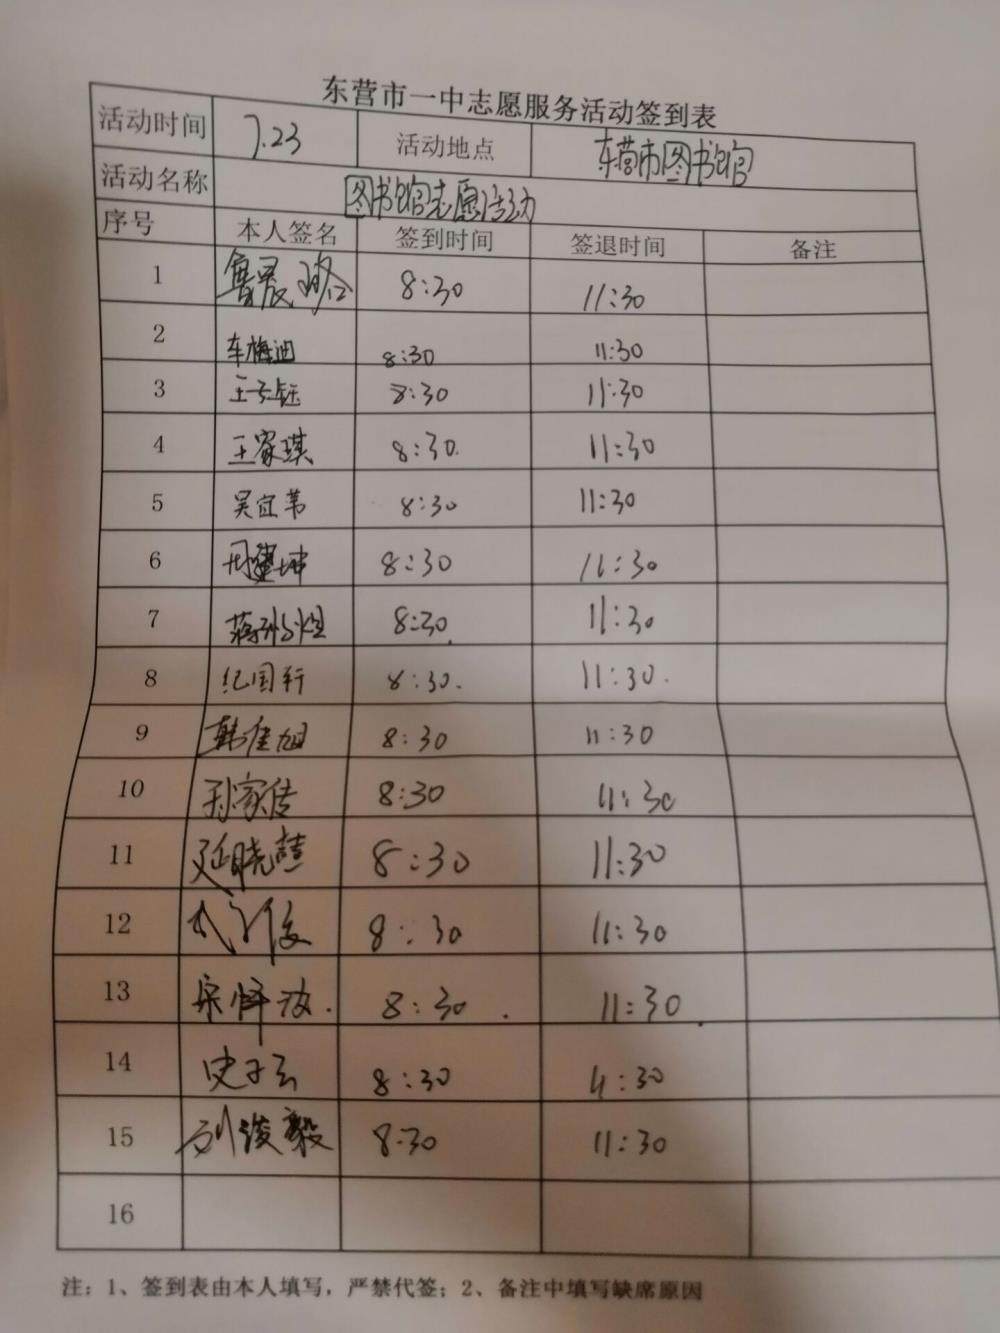 东营市一中志愿服务活动签到表
活动时间 7.23 活动地点 东营市图书馆
活动名称 图书馆志愿活动
序号 本人签名 签到时间 签退时间 备注
1 8:30 11:30
2 车梅迪 8:30 11:30
3 8:30 11:30
4 王家琪 8:30. 11:30
5 吴宜苇 8:30 11:30
6 8:30 11:30
7 8:30. 11:30
8 纪国轩 8:30. 11:30.
9 韩佳旭 8:30 11:30
10 孙家传 8:30 11:30
11 延晓慧 8:30 11:30
12 8:30 11:30
13 8:30. 11:30.
14 史子云 8:30 11:30
15 刘俊毅 8:30 11:30
16
注：1、签到表由本人填写，严禁代签；2、备注中填写缺席原因